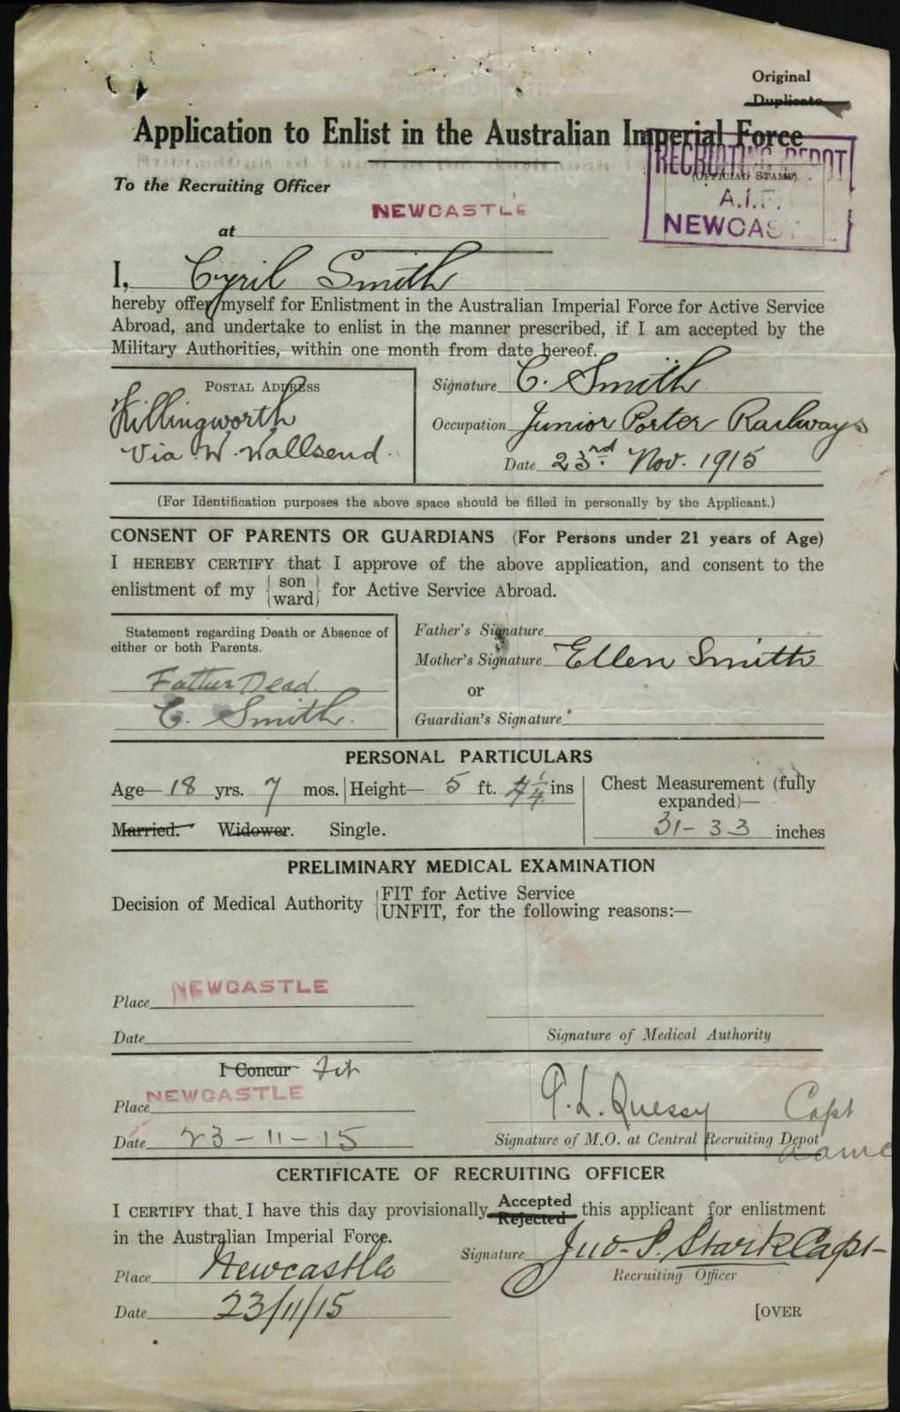 Original
Duplicate
Application to Enlist in the Australian Imperial Force
RECRUITING DEPOT
(OFFICIAL STAMP)
A.I.F.
NEWCAS
To the Recruiting Officer
NEWCASTLE
at
I, Cyril Smith
hereby offer myself for Enlistment in the Australian Imperial Force for Active Service
Abroad, and undertake to enlist in the manner prescribed, if I am accepted by the
Military Authorities, within one month from date hereof.
POSTAL ADDRESS
Killingworth
Via W. Wallsend.
Signature C. Smith
Occupation Junior Porter Railways
Date 23rd. Nov. 1915
(For Identification purposes the above space should be filled in personally by the Applicant.)
CONSENT OF PARENTS OR GUARDIANS (For Persons under 21 years of Age)
I HEREBY CERTIFY that I approve of the above application, and consent to the
enlistment of my { son ward } for Active Service Abroad.
Statement regarding Death or Absence of
either or both Parents.
Father Dead.
C. Smith.
Father's Signature
Mother's Signature Ellen Smith
or
Guardian's Signature
PERSONAL PARTICULARS
Age— 18 yrs. 7 mos. Height— 5 ft. 4 1/4 ins
Chest Measurement (fully
expanded)—
31 - 33 inches
Married. Widower. Single.
PRELIMINARY MEDICAL EXAMINATION
Decision of Medical Authority { FIT for Active Service
UNFIT, for the following reasons:—
Place NEWCASTLE
Date
Signature of Medical Authority
I Concur Fit
Place NEWCASTLE
Date 23-11-15
Capt
Signature of M.O. at Central Recruiting Depot
CERTIFICATE OF RECRUITING OFFICER
I CERTIFY that I have this day provisionally Accepted Rejected this applicant for enlistment
in the Australian Imperial Force.
Signature Jno. S. Stark Capt
Recruiting Officer
Place Newcastle
Date 23/11/15
[OVER